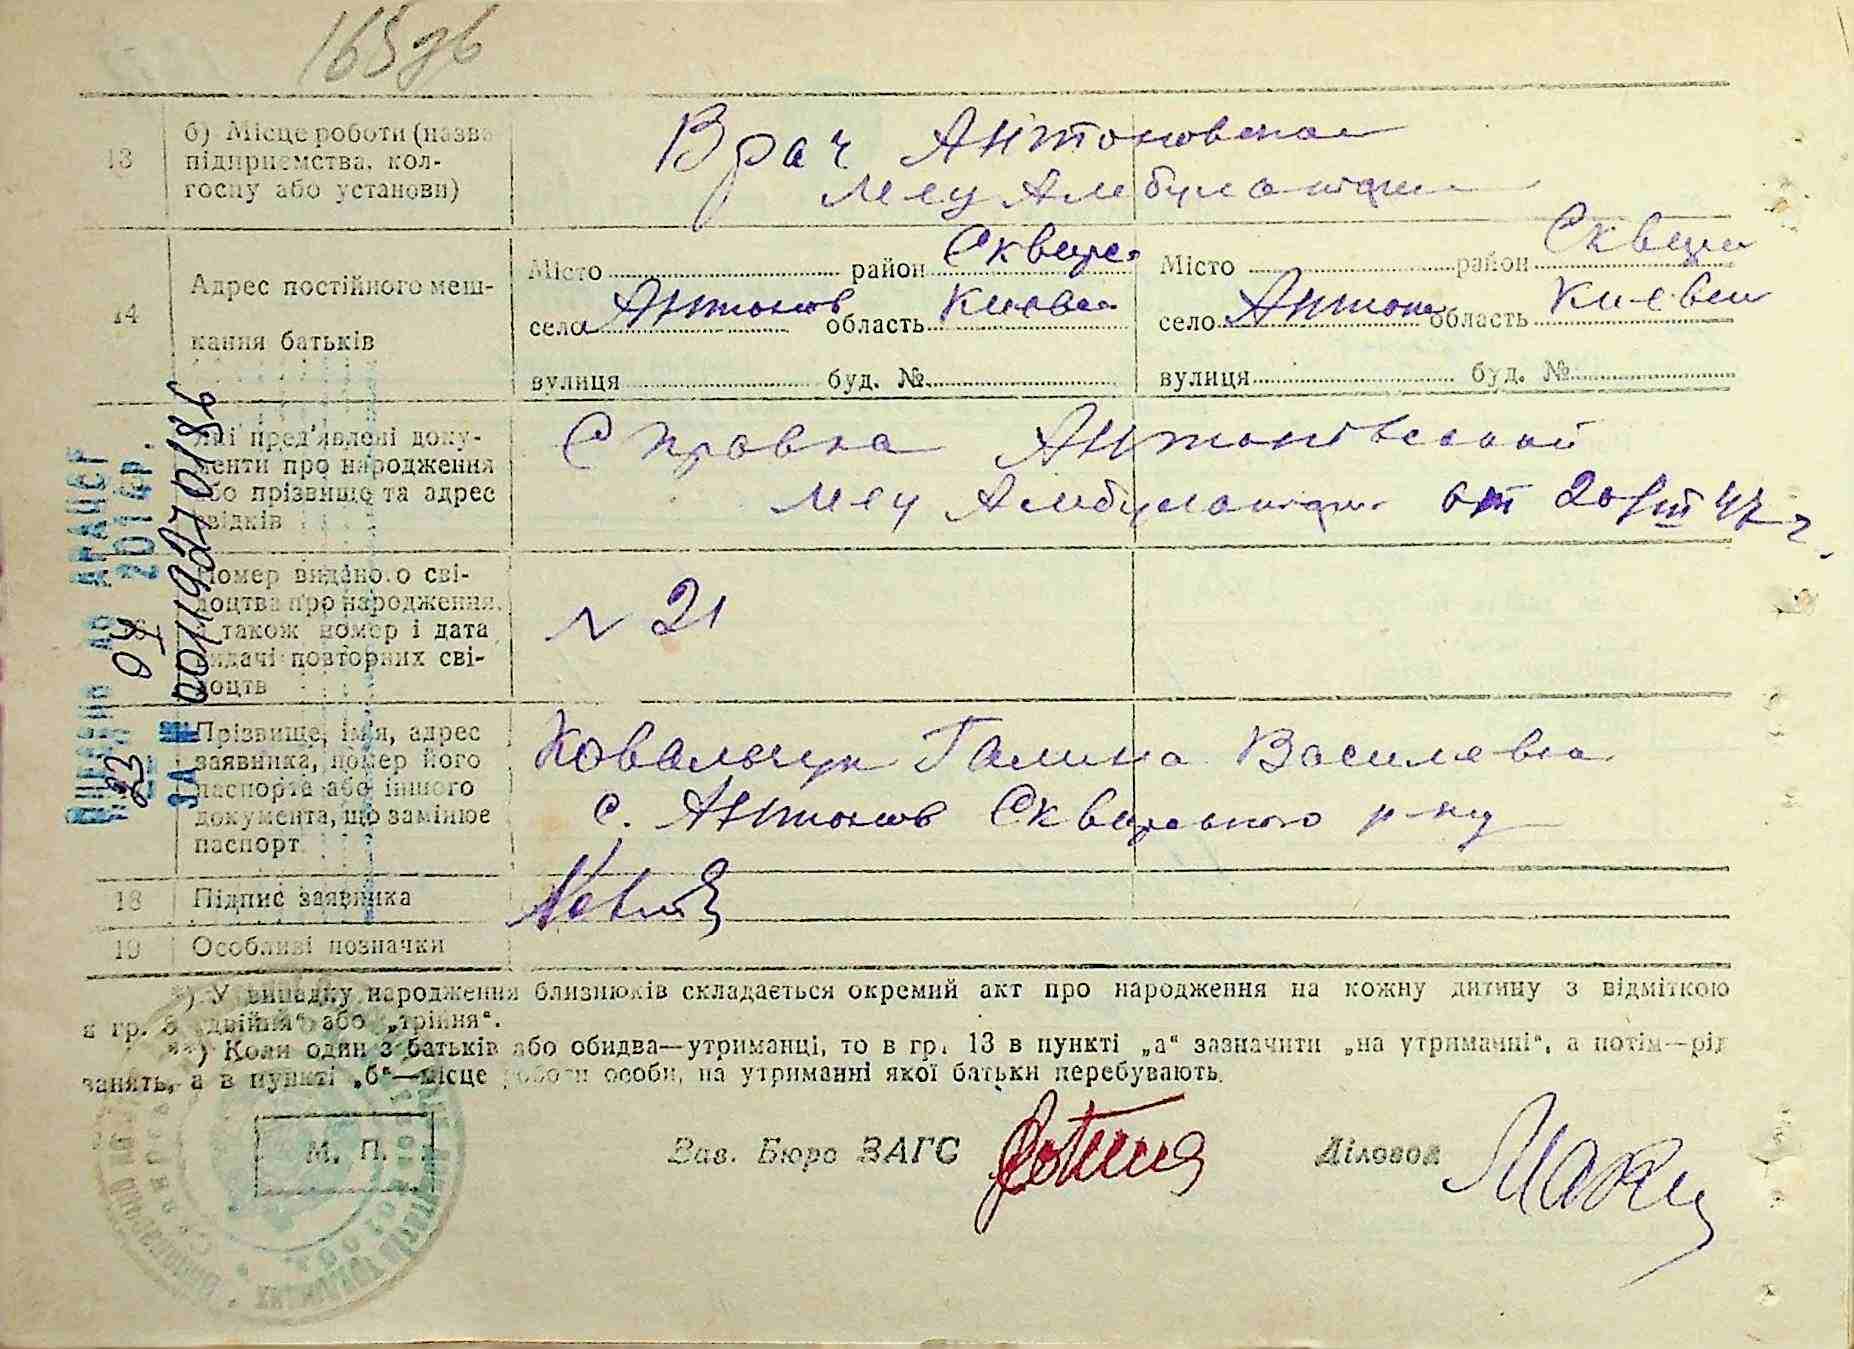 165зв
13 б) Місце роботи (назва підприємства, колгоспу або установи)
Врач Антоновская
Мед Амбулатория
14 Адрес постійного мешкання батьків
Місто район Сквирс.
село Антонов область Киевск
вулиця буд. №
Місто район Сквирс
село Антонов область Киевск
вулиця буд. №
Які пред'явлені документи про народження або прізвище та адрес свідків
Справка Антонівської
Мед Амбулатории от 20/VIII 47 г.
Номер виданого свідоцтва про народження, а також номер і дата видачі повторних свідоцтв
N 21
Прізвище, ім'я, адрес заявника, номер його паспорта або іншого документа, що замінює паспорт
Ковальчук Галина Василевна
с. Антонов Сквирського р-ну
18 Підпис заявника
19 Особливі позначки
*) У випадку народження близнюків складається окремий акт про народження на кожну дитину з відміткою
в гр. 3 „двійня“ або „трійня“.
**) Коли один з батьків або обидва—утриманці, то в гр. 13 в пункті „а“ зазначити „на утриманні“, а потім—рід
занять, а в пункті „б“—місце роботи особи, на утриманні якої батьки перебувають.
М. П.
Зав. Бюро ЗАГС
Діловод
ВНЕСЕНО ДО ДРАЦСГ
22 04 2014р.
ЗА № 00119270186